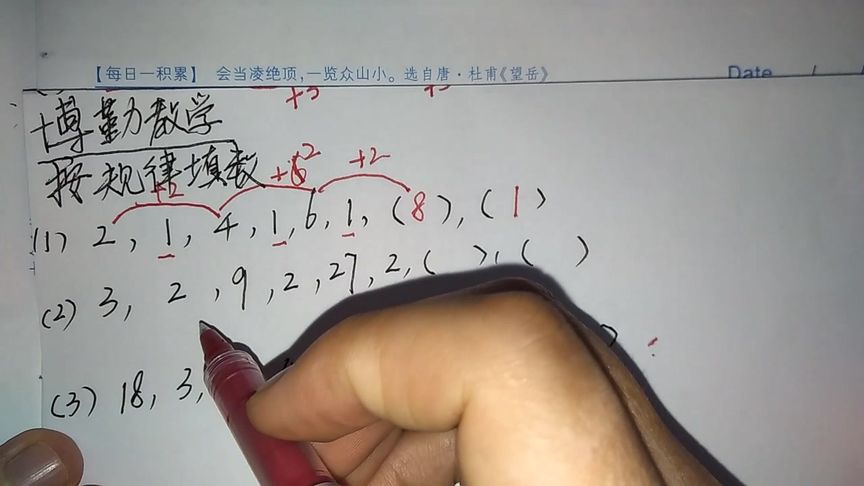 【每日一积累】 会当凌绝顶,一览众山小。选自唐·杜甫《望岳》 Date / /
+3 +3
博勤数学
按规律填数
+2 +2 +2
(1) 2, 1, 4, 1, 6, 1, (8), (1)
(2) 3, 2, 9, 2, 27, 2, ( ), ( )
(3) 18, 3,